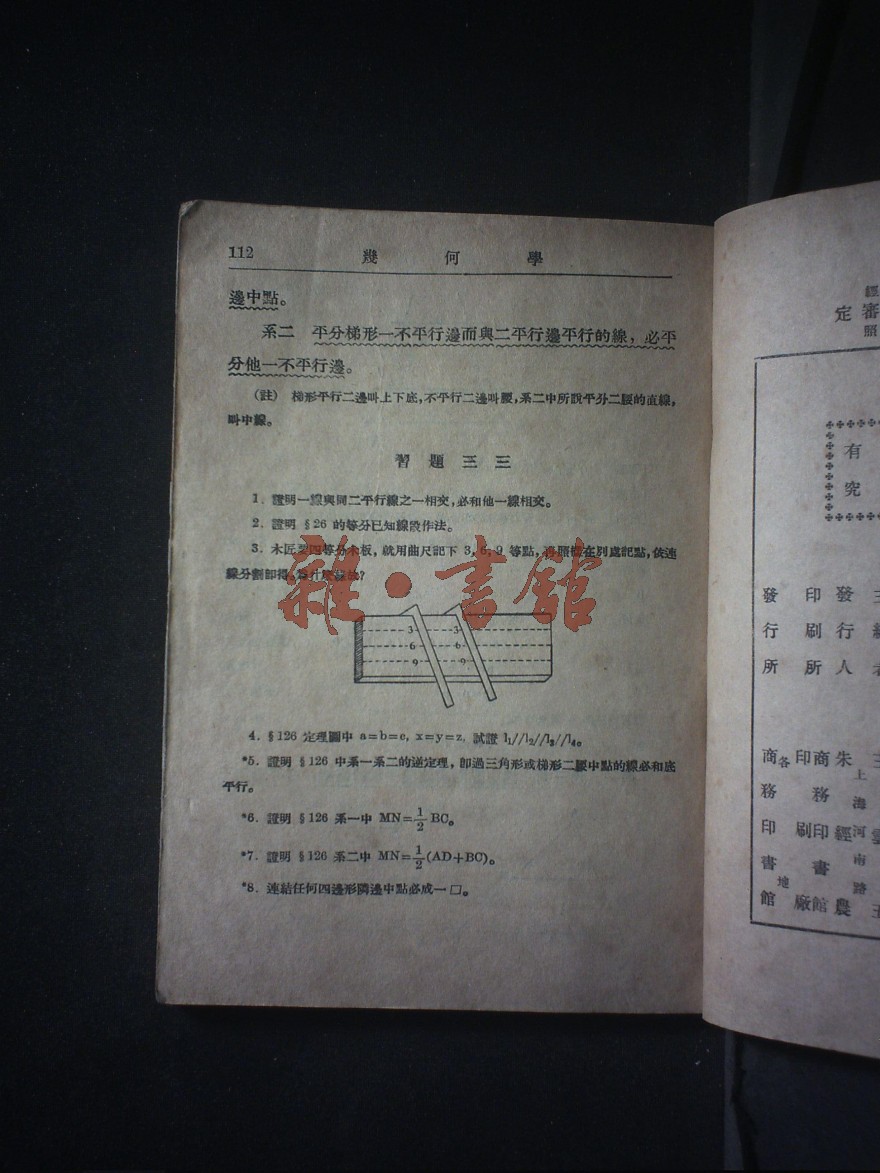 112
幾 何 學
邊中點。
系二 平分梯形一不平行邊而與二平行邊平行的線，必平
分他一不平行邊。
（註） 梯形平行二邊叫上下底，不平行二邊叫腰，系二中所說平分二腰的直線，
叫中線。
習 題 三 三
1. 證明一線與同二平行線之一相交，必和他一線相交。
2. 證明 §26 的等分已知線段作法。
3. 木匠要四等分木板，就用曲尺記下 3, 6, 9 等點，再照樣在別處記點，依連
線分割即得，為什麼
雜·書館
3 3
6 6
9 9
4. §126 定理圖中 a=b=c, x=y=z, 試證 l₁//l₂//l₃//l₄。
*5. 證明 §126 中系一系二的逆定理，卽過三角形或梯形二腰中點的線必和底
平行。
*6. 證明 §126 系一中 MN=1/2 BC。
*7. 證明 §126 系二中 MN=1/2(AD+BC)。
*8. 連結任何四邊形隣邊中點必成一 □。
審定
有
究
發行所
印刷所
發行人
商務印書館
各地
印刷廠
商務印書館
上海河南路
朱經農